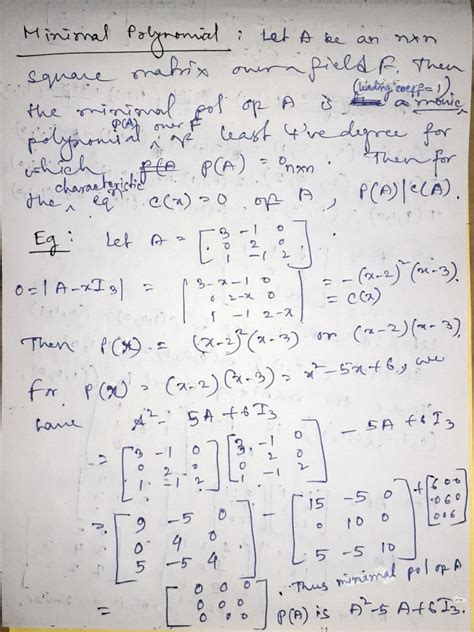 Minimal Polynomial : Let A be an nxn
square matrix over a field F. Then
(leading coeff = 1)
the minimal pol of A is a monic
polynomial P(A) over F of least +'ve degree for
which P(A) = 0nxn . Then for
the characteristic eqn C(x) = 0 of A, P(A)|C(A).
Eg : Let A = [3 -1 0
0 2 0
1 -1 2].
0 = |A-xI3| = |3-x -1 0
0 2-x 0
1 -1 2-x| = -(x-2)²(x-3).
= C(x)
Then P(x) = (x-2)²(x-3) or (x-2)(x-3).
For P(x) = (x-2)(x-3) = x²-5x+6, we
have A² - 5A + 6I3
= [3 -1 0
0 2 0
1 -1 2] [3 -1 0
0 2 0
1 -1 2] - 5A + 6I3
= [9 -5 0
0 4 0
5 -5 4] - [15 -5 0
0 10 0
5 -5 10] + [6 0 0
0 6 0
0 0 6]
= [0 0 0
0 0 0
0 0 0] . Thus minimal pol of A
P(A) is A²-5A+6I3.